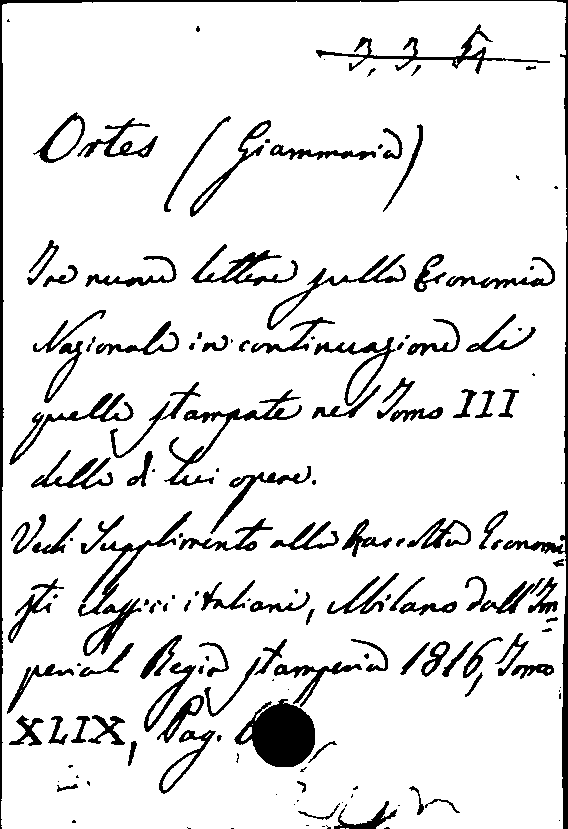 3, 3, 51
Ortes (Giammaria)
Tre nuove lettere sulla Economia
Nazionale in continuazione di
quelle stampate nel Tomo III
delle di lui opere.
Vedi Supplimento alla Raccolta Economi=
sti classici italiani, Milano dall'Im=
perial Regia stamperia 1816, Tomo
XLIX, Pag.